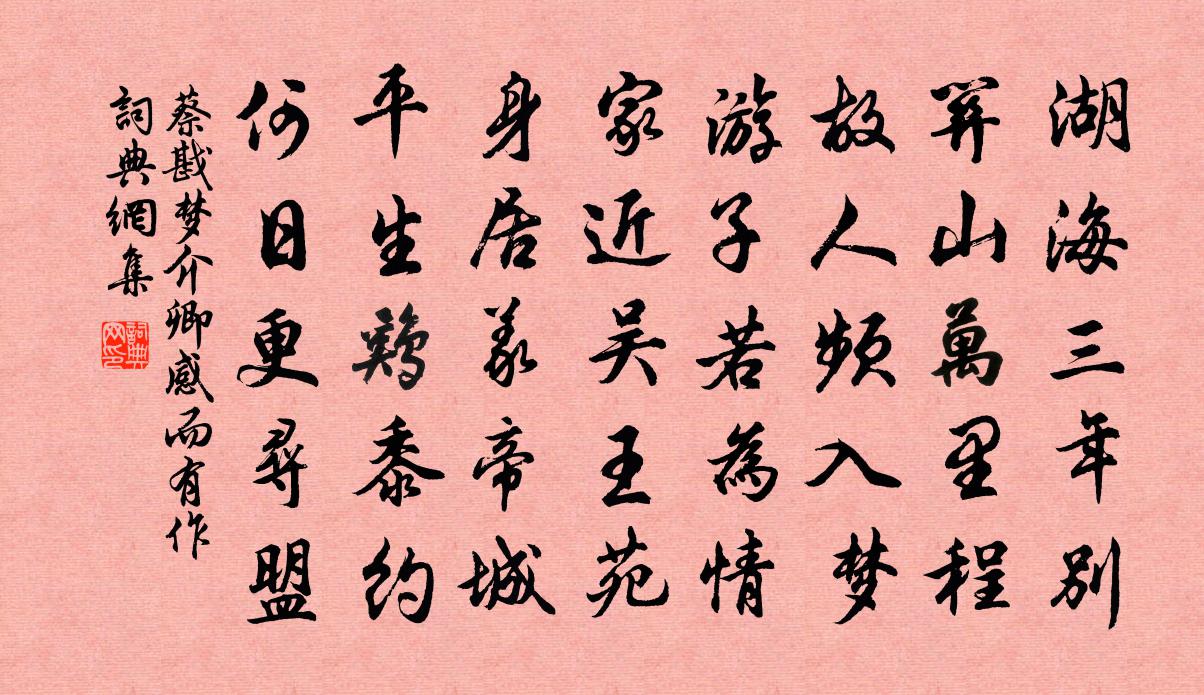 湖海三年别
關山萬里程
故人频入梦
游子若為情
家近吴王苑
身居義帝城
平生鷄黍约
何日更尋盟
蔡戡梦介卿感而有作
詞典網集
詞典
网印